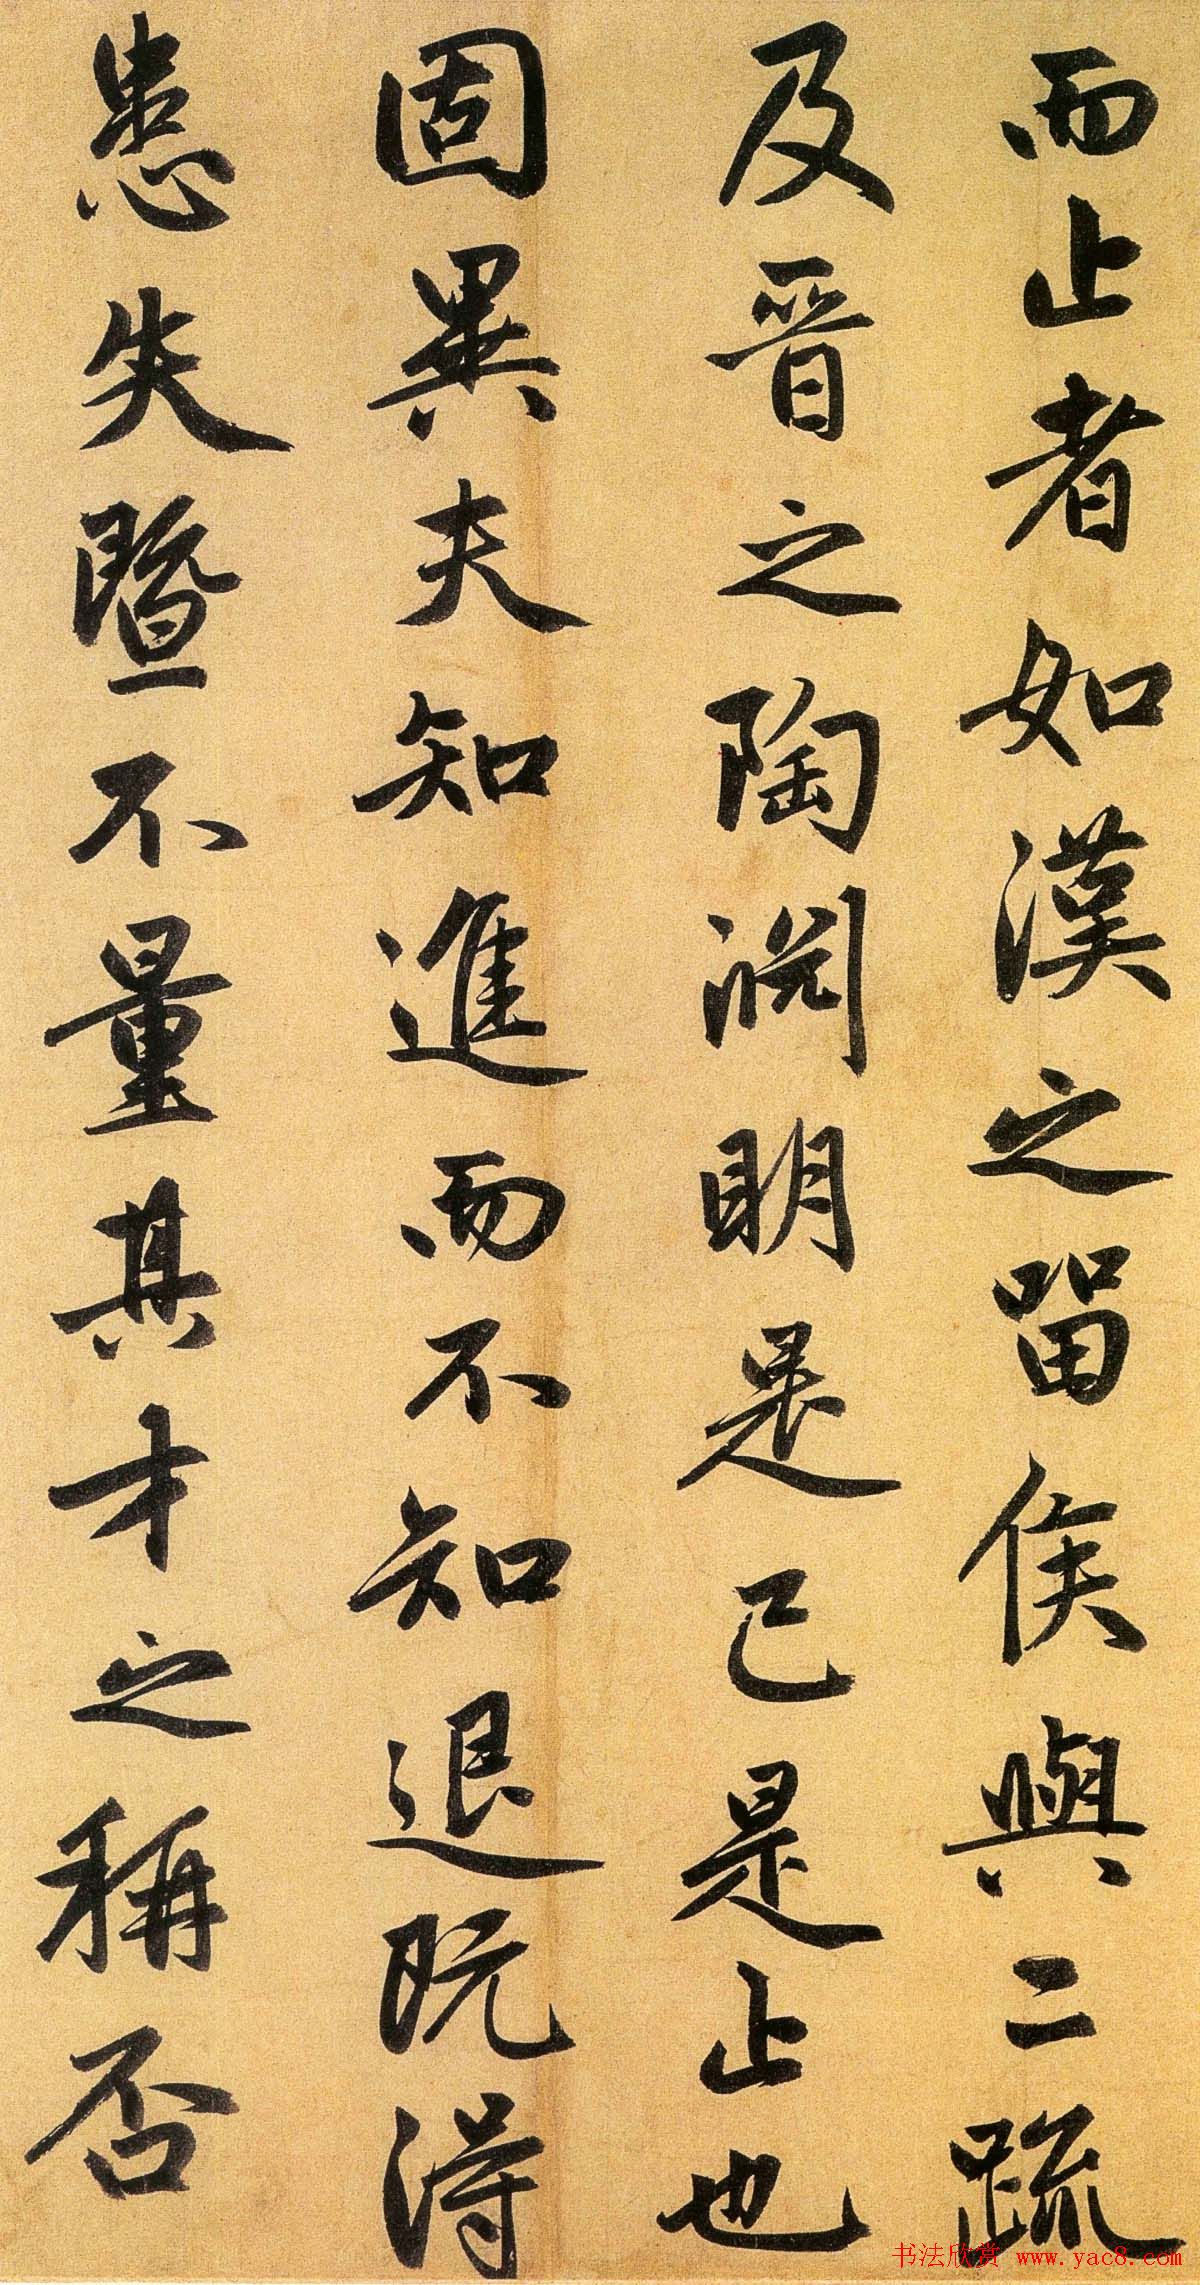 而止者如漢之留侯與二疏
及晋之陶渊明是已是止也
固異夫知進而不知退既得
患失暨不量其才之稱否
书法欣赏 www.yac8.com